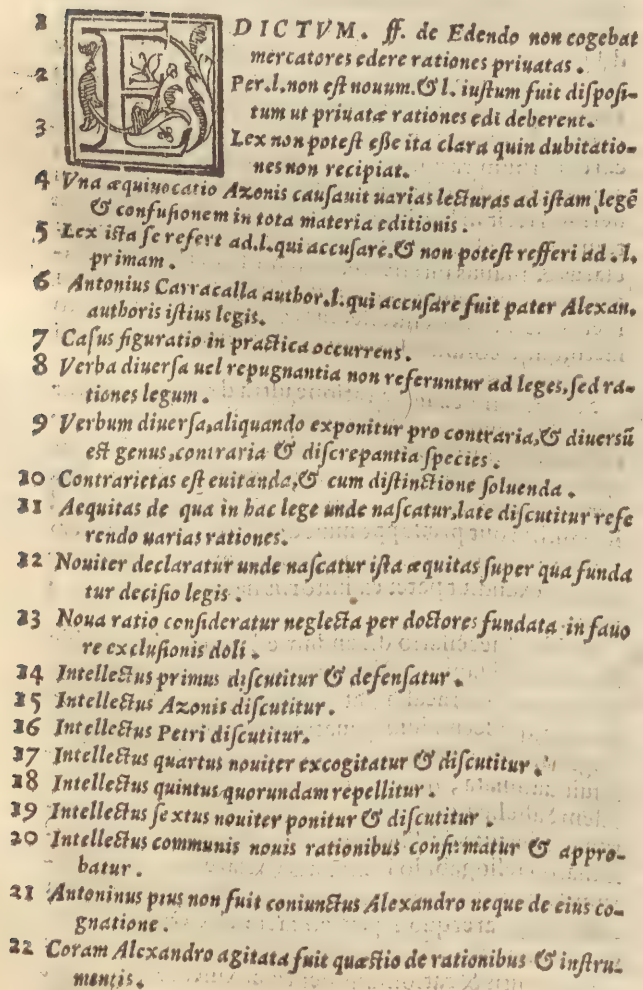 1 EDICTVM. ff. de Edendo non cogebat
mercatores edere rationes priuatas.
2 Per.l.non eſt nouum.& l. iuſtum fuit diſpoſi-
tum ut priuatæ rationes edi deberent.
3 Lex non poteſt eſſe ita clara quin dubitatio-
nes non recipiat.
4 Vna æquiuocatio Azonis cauſauit uarias lecturas ad iſtam legẽ
& confuſionem in tota materia editionis.
5 Lex iſta ſe refert ad.l.qui accuſare.& non poteſt refferi ad .l.
primam.
6 Antonius Carracalla author.l.qui accuſare fuit pater Alexan.
authoris iſtius legis.
7 Caſus figuratio in practica occurrens.
8 Verba diuerſa uel repugnantia non referuntur ad leges, ſed ra-
tiones legum.
9 Verbum diuerſa,aliquando exponitur pro contraria,& diuersũ
eſt genus,contraria & diſcrepantia ſpecies.
10 Contrarietas eſt euitanda,& cum diſtinctione ſoluenda.
11 Aequitas de qua in hac lege unde naſcatur,late diſcutitur refe
rendo uarias rationes.
12 Nouiter declaratur unde naſcatur iſta æquitas ſuper qua funda
tur deciſio legis.
13 Noua ratio conſideratur neglecta per doctores fundata in fauo
re excluſionis doli.
14 Intellectus primus diſcutitur & defenſatur.
15 Intellectus Azonis diſcutitur.
16 Intellectus Petri diſcutitur.
17 Intellectus quartus nouiter excogitatur & diſcutitur.
18 Intellectus quintus quorundam repellitur.
19 Intellectus ſextus nouiter ponitur & diſcutitur.
20 Intellectus communis nouis rationibus confirmatur & appro-
batur.
21 Antoninus pius non fuit coniunctus Alexandro neque de eius co-
gnatione.
22 Coram Alexandro agitata fuit quæſtio de rationibus & inſtru-
mentis.